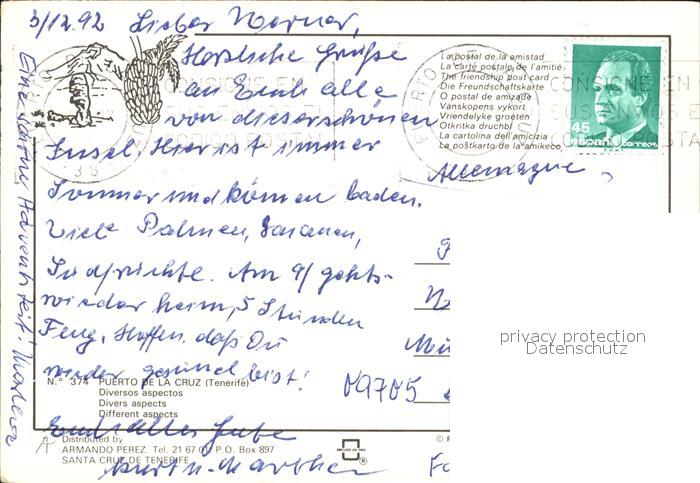 3/12.92 Lieber Werner,
Herzliche Grüße
an Euch alle
von dieser schönen
Insel. Hier ist immer
Sommer und können baden.
Viele Palmen, Bananen,
Südfrüchte. Am 9/ gehts
wieder heim, 5 Stunden
Flug. Hoffen, daß Du
wieder gesund bist!
Euch alles Gute
Kurt u. Marthel
Eine schöne Advents Zeit!
La postal de la amistad
La carte postale de l'amitié
The friendship post card
Die Freundschaftskarte
O postal de amizade
Vänskopens vykort
Vriendelyke groeten
Otkritka druchbi
La cartolina dell'amicizia
La poştkarta de la amikeco
45
CONSIGNE EN
CODIGO POSTAL
CONSIGNE EN
SUS ENVIOS EL
Allemagne
09705
privacy protection
Datenschutz
N.° 374 PUERTO DE LA CRUZ (Tenerife)
Diversos aspectos
Divers aspects
Different aspects
Distributed by
ARMANDO PEREZ. Tel. 21 67 P.O. Box 897
SANTA CRUZ DE TENERIFE